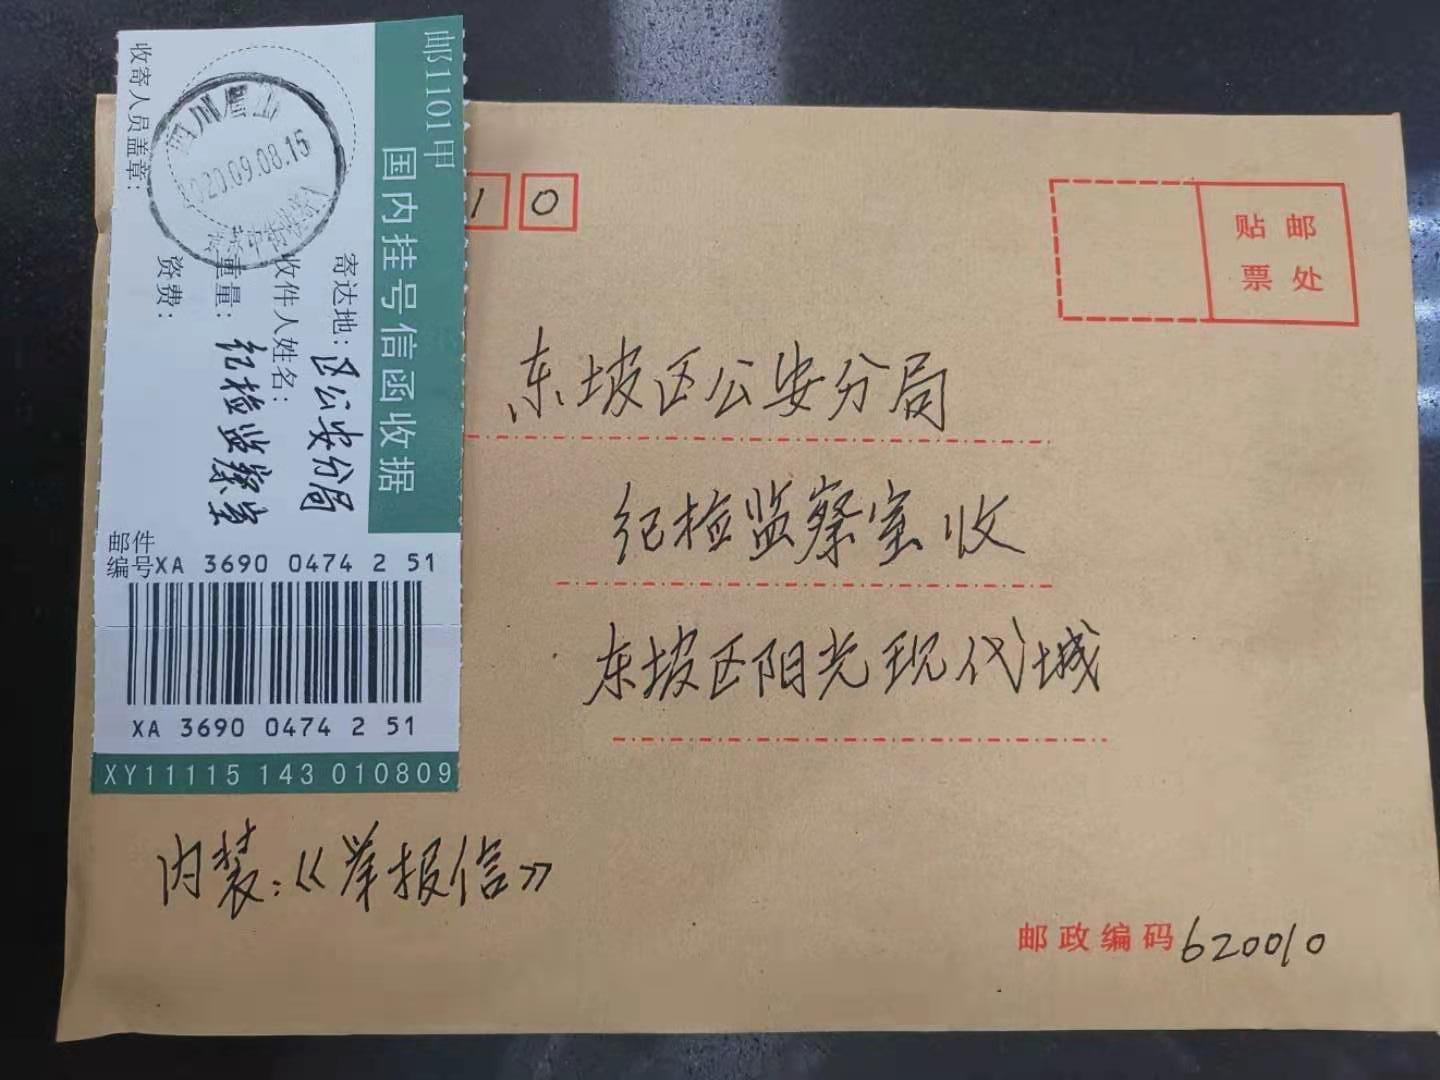 邮1101甲
国内挂号信函收据
寄达地：区公安分局
收件人姓名：纪检监察室
重量：
资费：
收寄人员盖章：
四川眉山
2020.09.08.15
邮件
编号XA 3690 0474 2 51
XA 3690 0474 2 51
XY11115 143 010809
1 0
贴 邮
票 处
东坡区公安分局
纪检监察室收
东坡区阳光现代城
内装：《举报信》
邮政编码620010